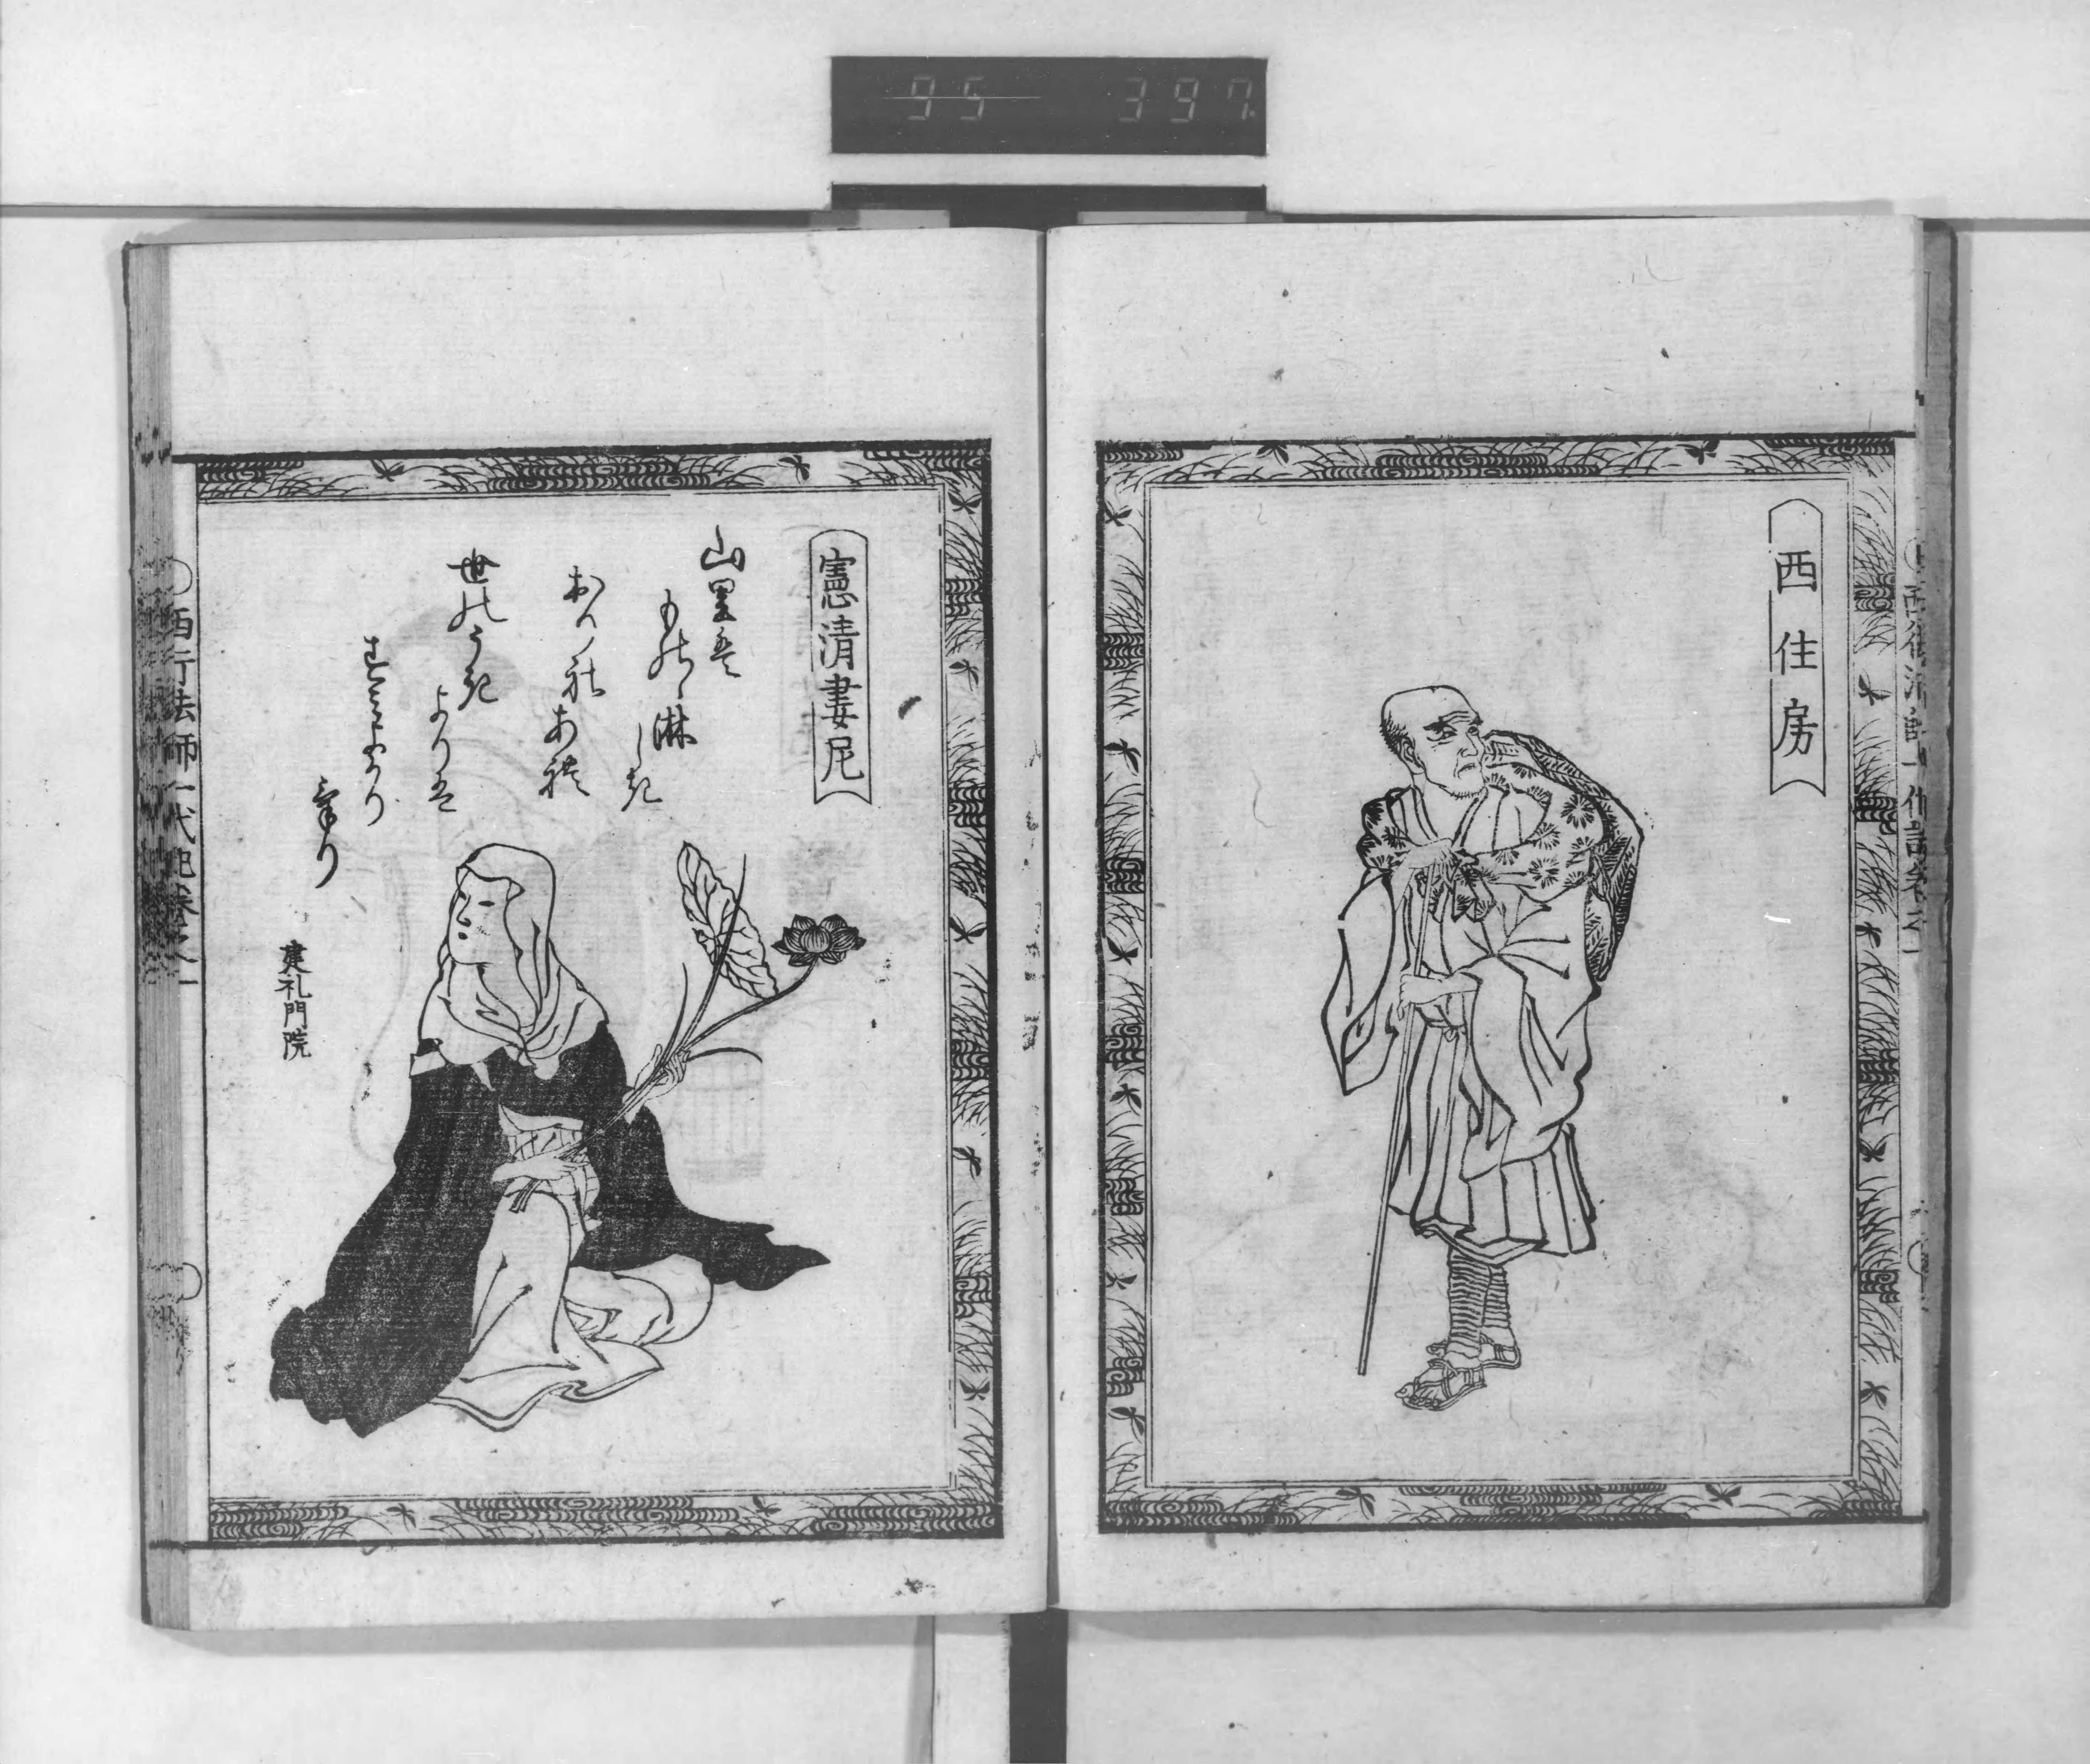 95 397
西住房
西行法師一代記卷之一
憲清妻尼
山里は
ものゝ淋
しき
おり社あれ
世のうき
よりは
すみよかり
けり
建礼門院
西行法師一代記卷之一